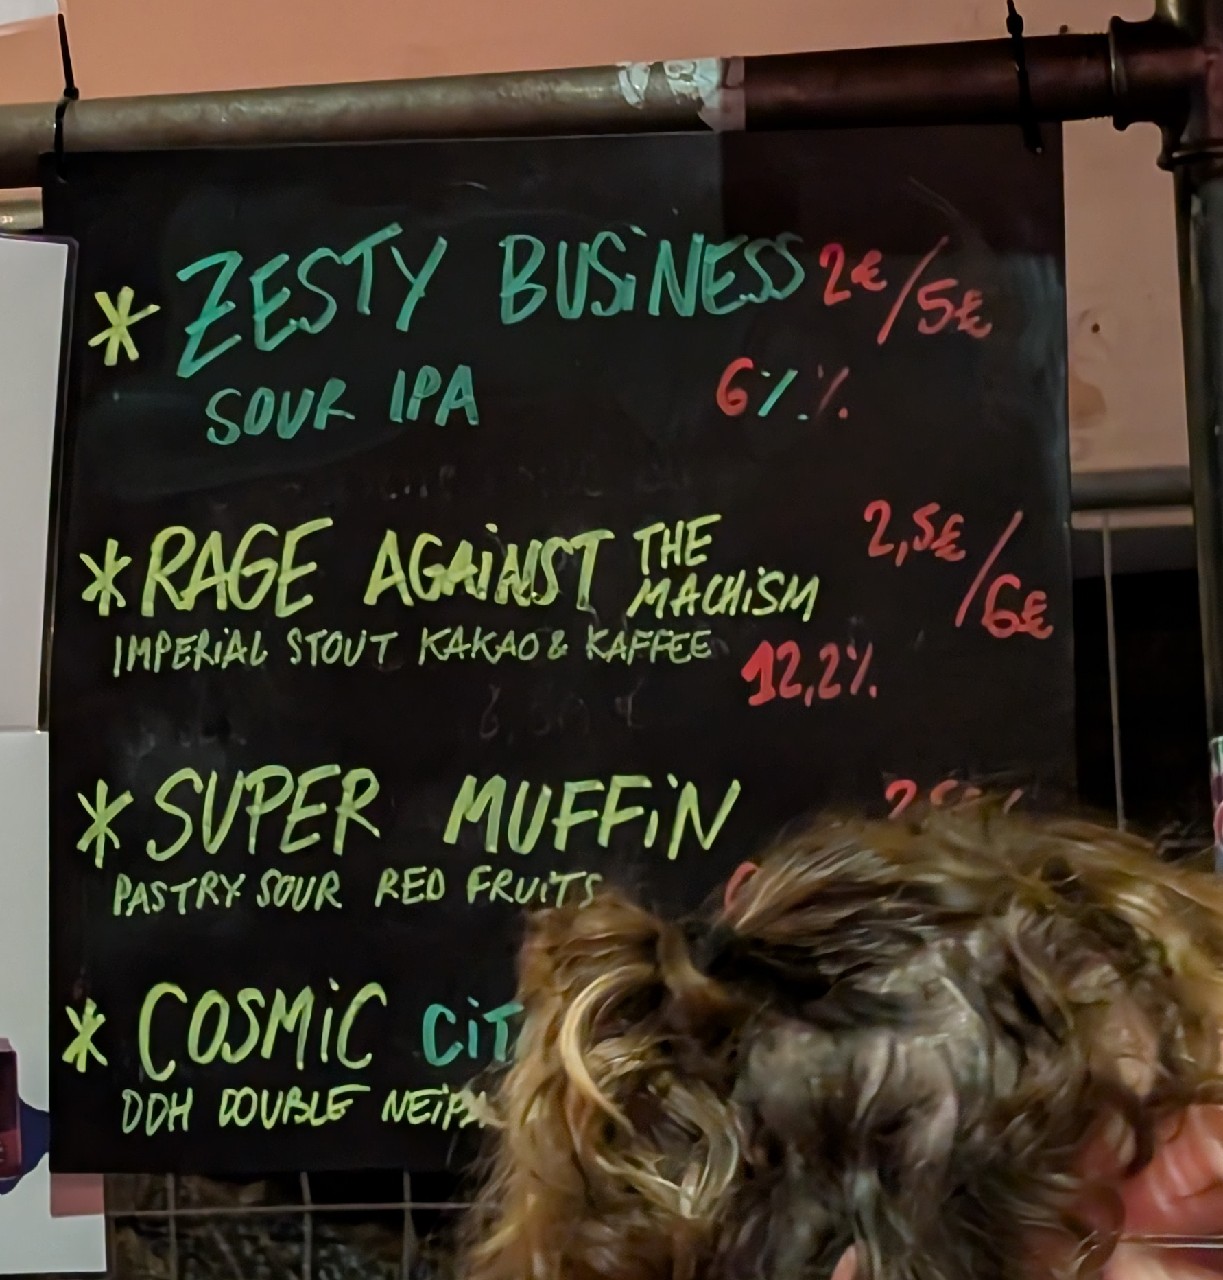 * ZESTY BUSINESS 2€/5€
SOUR IPA 6% %
* RAGE AGAINST THE MACHISM 2,5€/6€
IMPERIAL STOUT KAKAO & KAFFEE 12,2%
* SUPER MUFFIN
PASTRY SOUR RED FRUITS
* COSMIC CIT
DDH DOUBLE NEIPA